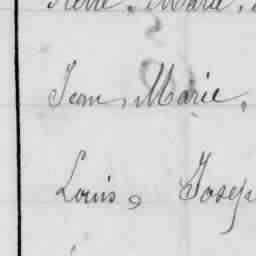 Marie,
Jean, Marie,
Louis, Josep